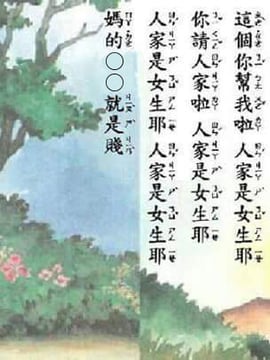 這個你幫我啦 人家是女生耶
你請人家啦 人家是女生耶
人家是女生耶 人家是女生耶
媽的○○就是賤